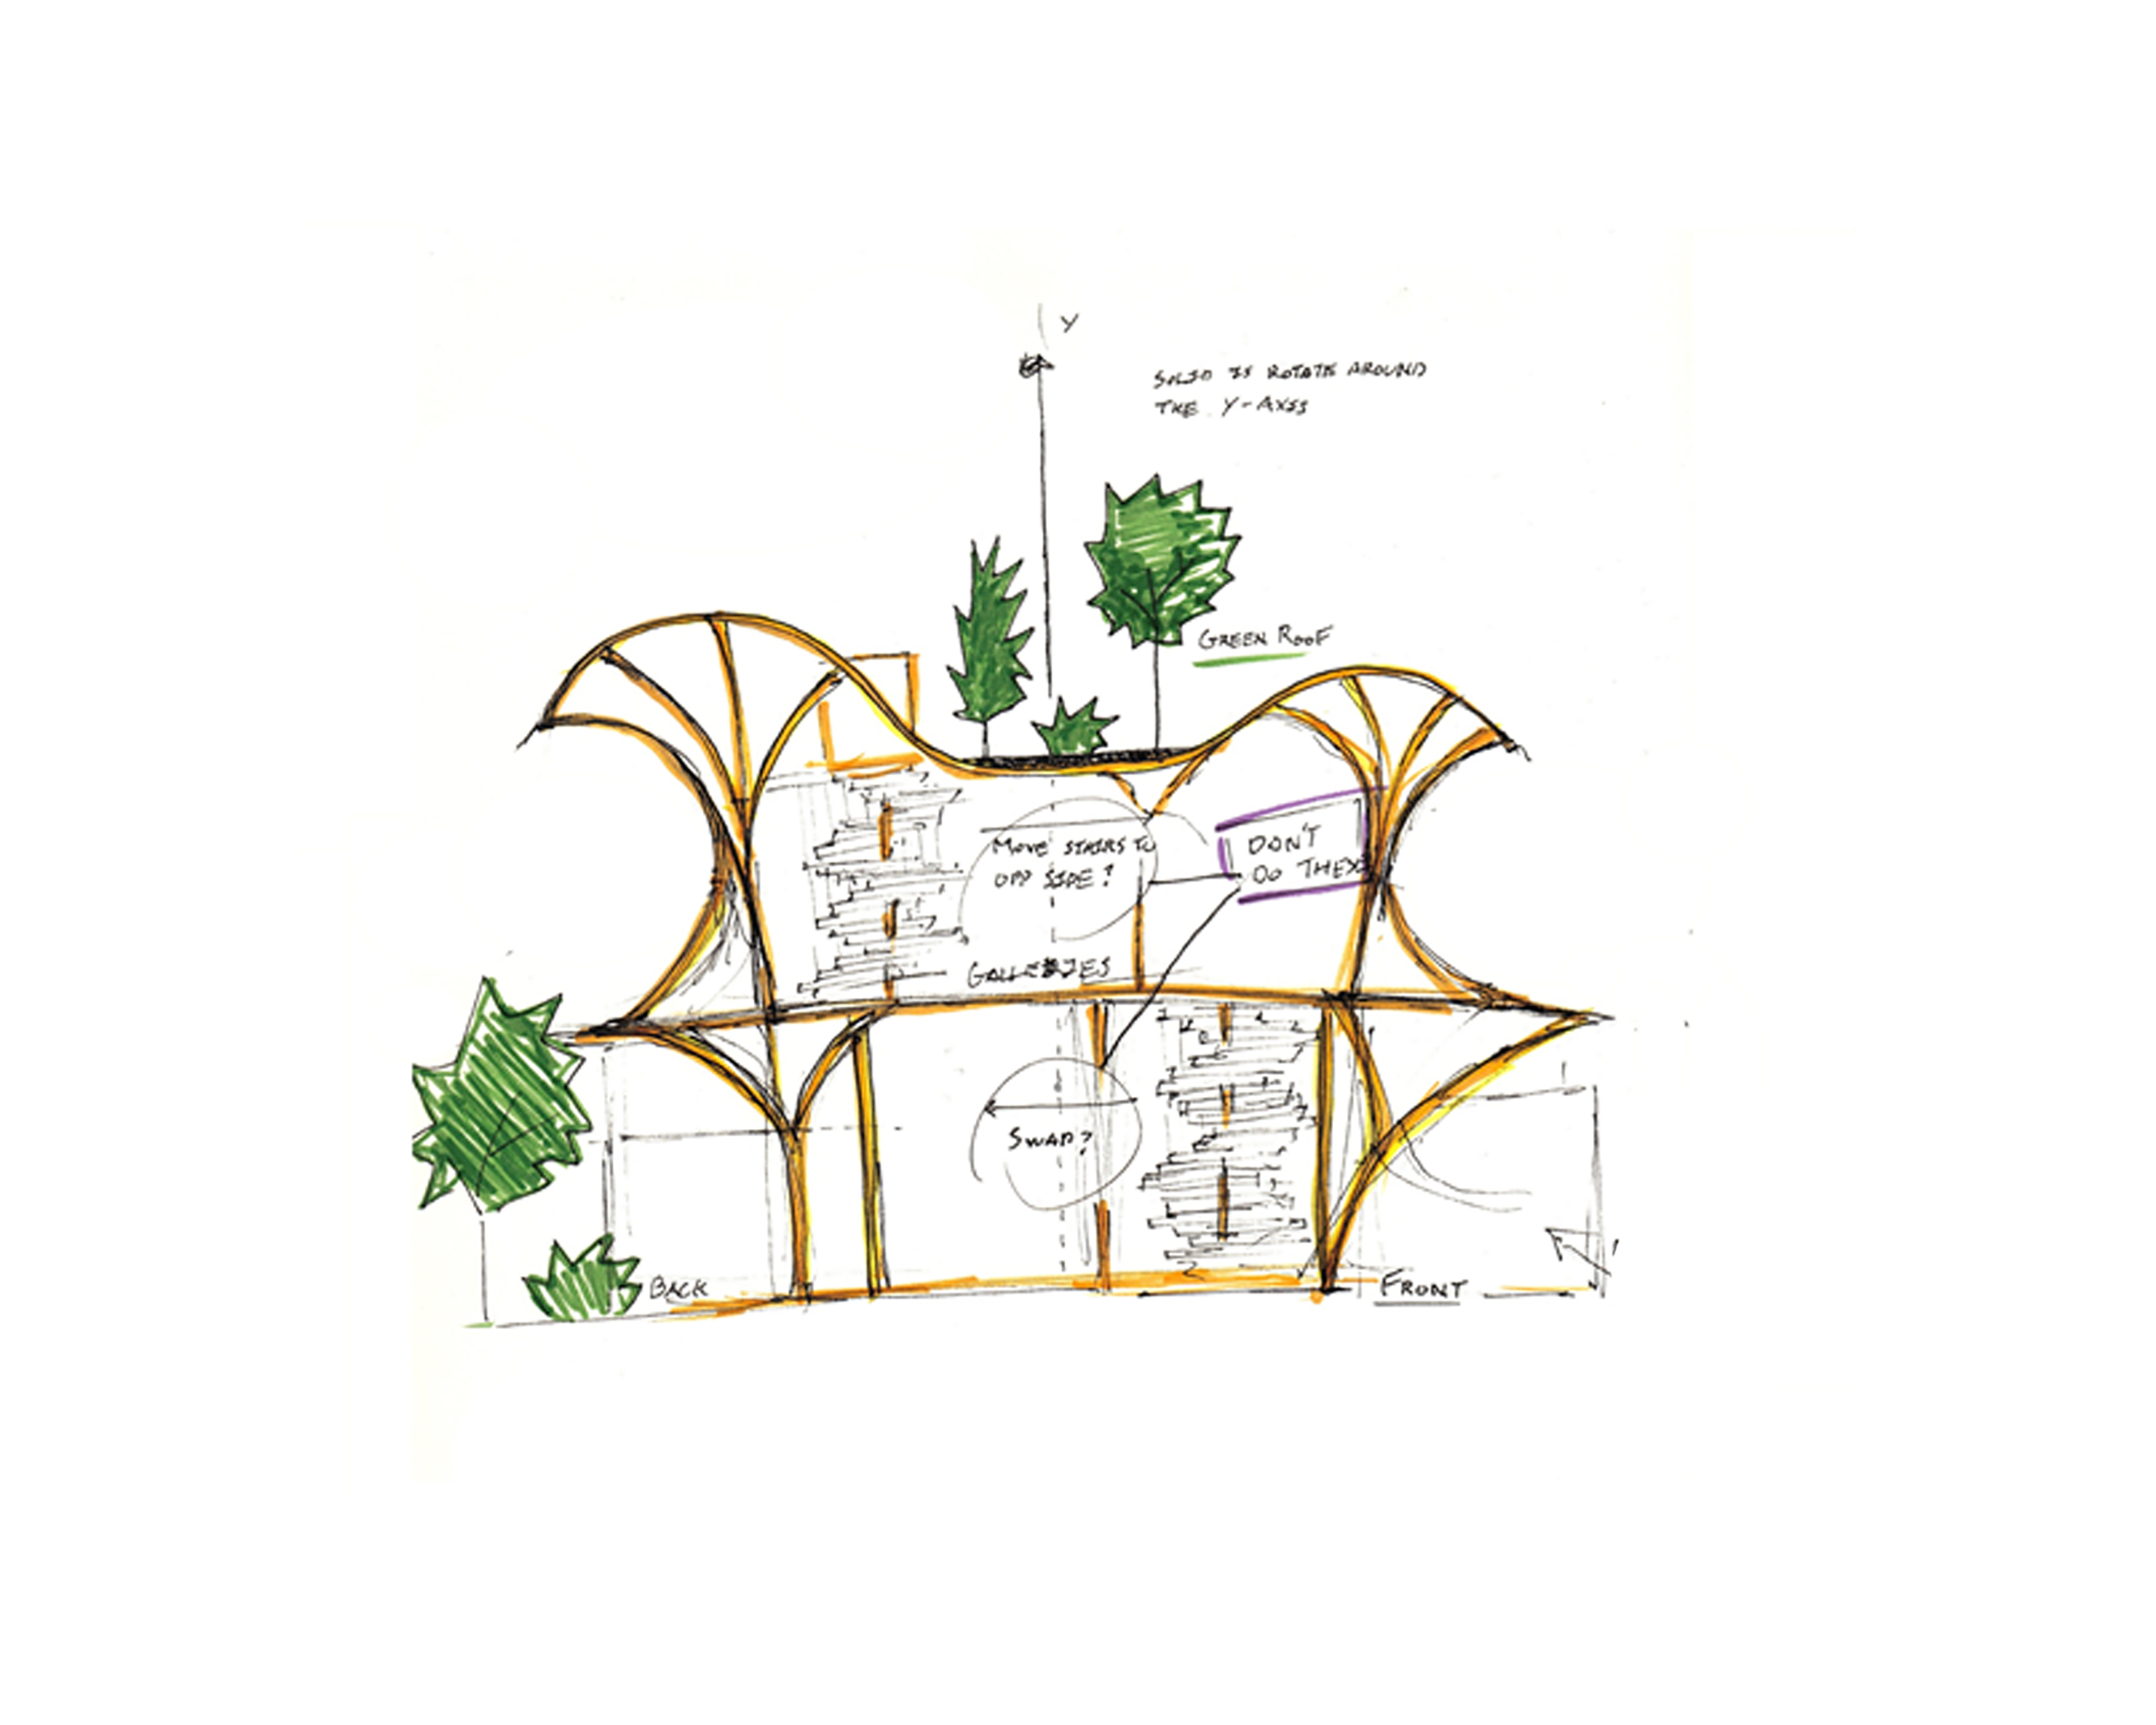 Y
SOLID IS ROTATE AROUND
THE Y-AXIS
GREEN ROOF
MOVE STAIRS TO
OPP SIDE?
DON'T
DO THESE
GALLERIES
SWAP?
BACK
FRONT